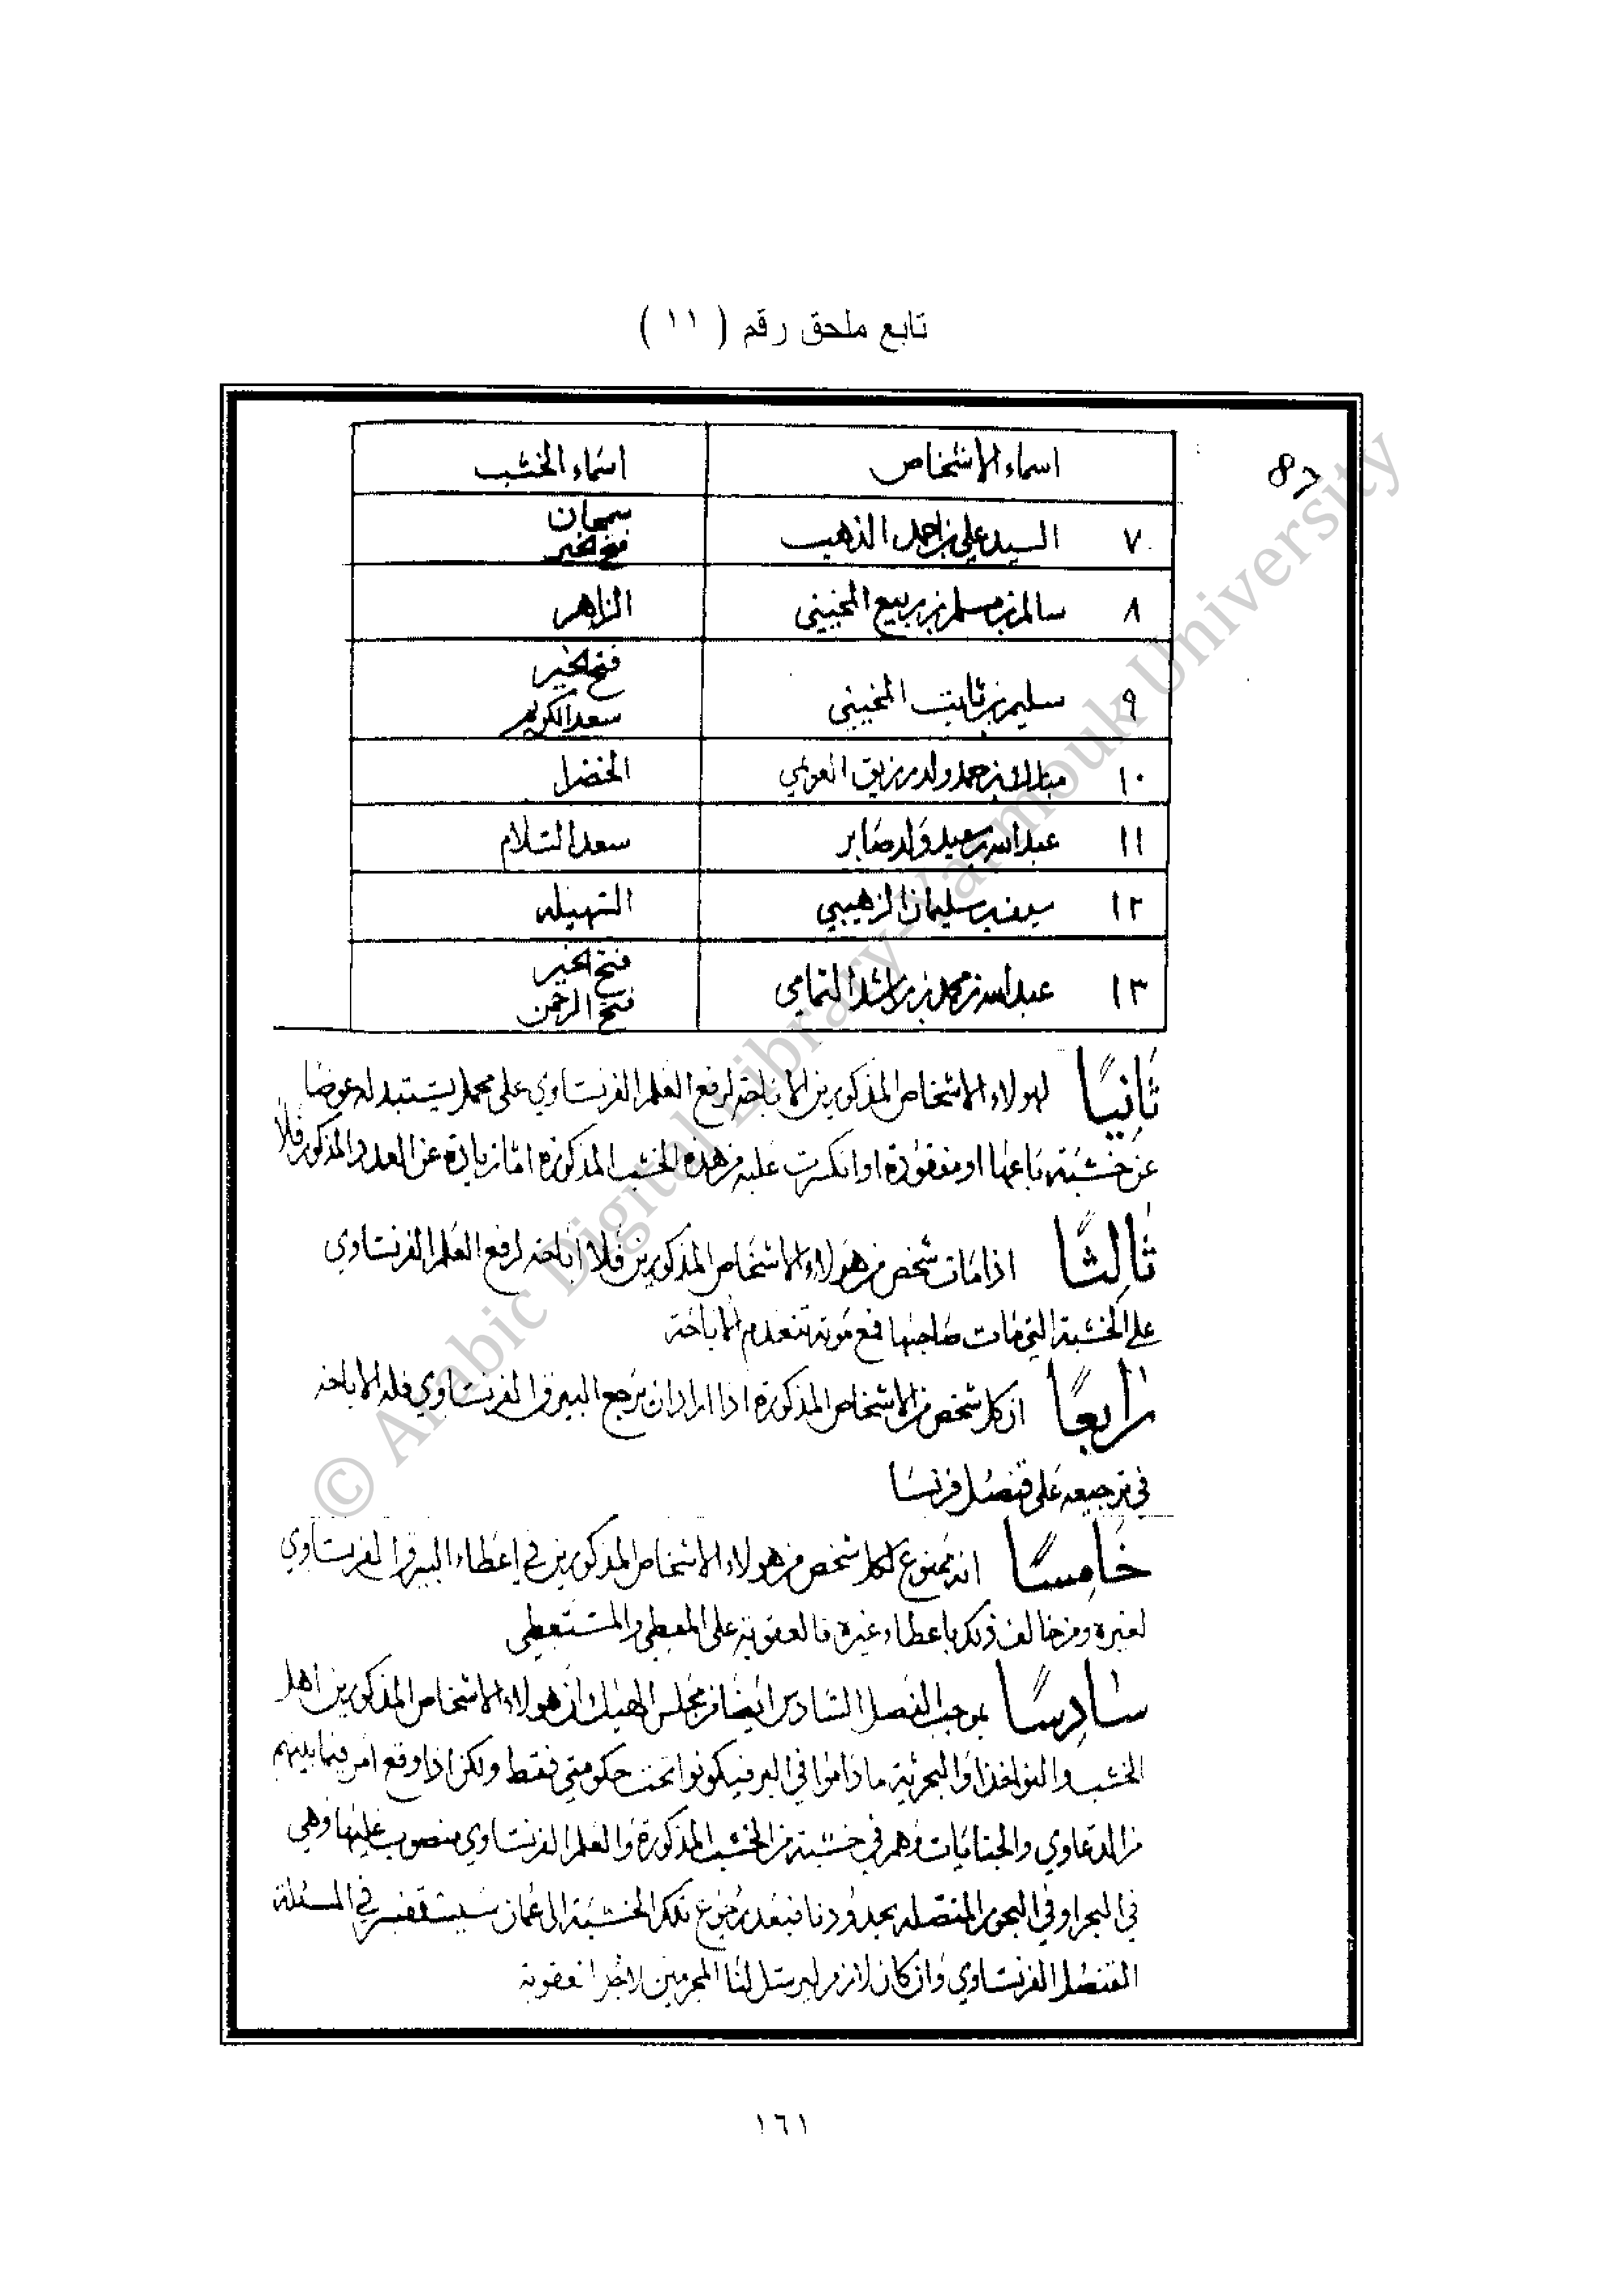 تابع ملحق رقم ( ١١ )
87
اسماء الاشخاص اسماء الخشب
٧ السيد علي بن احمد الذهيب سمحان
فتح الخير
٨ سالم بن مسلم بن ربيع المخيني الزاهر
٩ سليم بن ثابت المخيني فتح الخير
سعد الكريم
١٠ مبارك بن حمد ولد مرزيق العرلمي الخضل
١١ عبدالله بن سعيد ولد صابر سعد السلام
١٢ سيف بن سليمان الزهيبي السهيله
١٣ عبدالله بن محمد بن راشد التمامي فتح الخير
فتح الرحمن
ثانيًا لهولاء الاشخاص المذكورين الاباحة لرفع العلم الفرنساوي على محمل يستبدله عوضًا
عن خشبته باعها او مفقودة او انكسرت عليه من هذه الخشب المذكورة امّا زيادة عن العدد المذكور فلا
ثالثًا اذا مات شخص من هولاء الاشخاص المذكورين فلا اباحة لرفع العلم الفرنساوي
على الخشبة التي مات صاحبها فمع موته تنعدم الاباحة
رابعًا ان كل شخص من الاشخاص المذكورة اذا اراد ان يرجع البيرق الفرنساوي فله الاباحة
في ترجيعه على قنصل فرنسا
خامسًا انه ممنوع لكل شخص من هولاء الاشخاص المذكورين في إعطاء البيرق الفرنساوي
لغيره ومن خالف ذلك باعطاء غيره فالعقوبة على المعطي والمستعطي
سادسًا بموجب الفصل السادس ايضا من مجلس الهيك ان هولاء الاشخاص المذكورين اهل
الخشب والنواخذا والبحرية ما داموا في البر فيكونوا تحت حكومتي فقط ولكن اذا وقع امر فيما بينهم
من الدعاوي والجنايات وهم في خشبة من الخشب المذكورة والعلم الفرنساوي منصوب عليها وهي
في البحر او في البحور المتصله بحدودنا فبعد رجوع تلك الخشبة الى عمان سيستفسر في المسئلة
القنصل الفرنساوي وان كان لازم ليرسل لنا المجرمين لاجل العقوبة
١٦١
© Arabic Digital Library-Yarmouk University